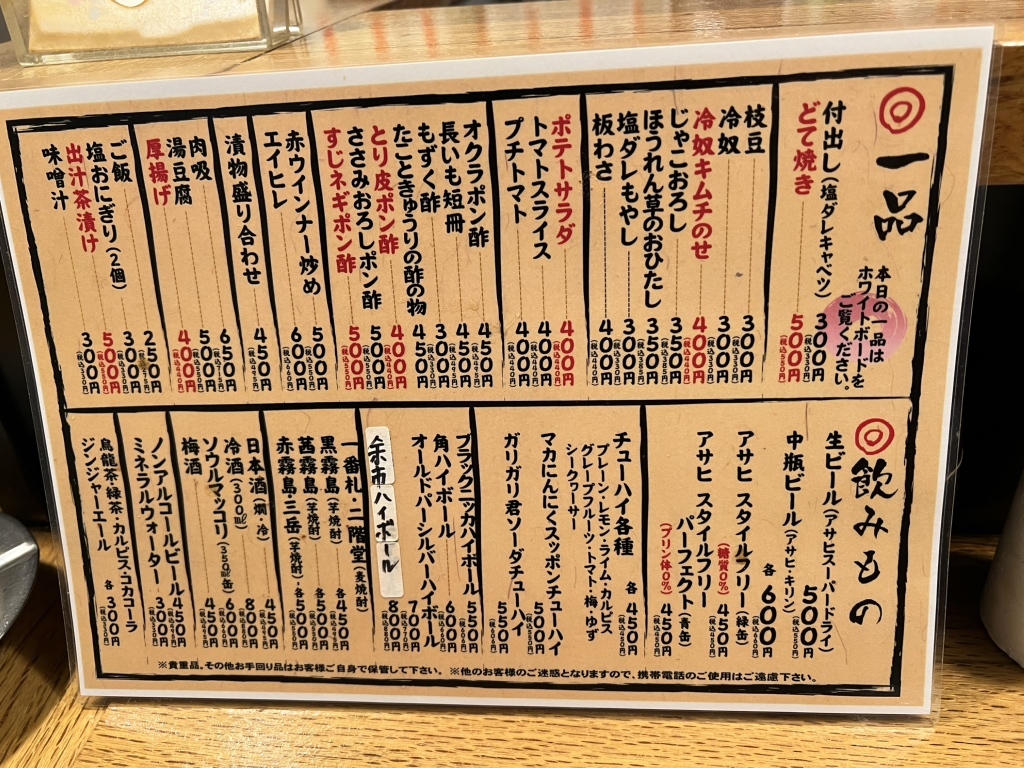 ◎一品
本日の一品は
ホワイトボードを
ご覧ください。
付出し(塩ダレキャベツ) 300円(税込330円)
どて焼き 500円(税込550円)
枝豆 300円(税込330円)
冷奴 300円(税込330円)
冷奴キムチのせ 400円(税込440円)
じゃこおろし 350円(税込385円)
ほうれん草のおひたし 350円(税込385円)
塩ダレもやし 350円(税込385円)
板わさ 400円(税込440円)
ポテトサラダ 400円(税込440円)
トマトスライス 400円(税込440円)
プチトマト 400円(税込440円)
オクラポン酢 450円(税込495円)
長いも短冊 450円(税込495円)
もずく酢 300円(税込330円)
たことききゅうりの酢の物 450円(税込495円)
とり皮ポン酢 400円(税込440円)
ささみおろしポン酢 500円(税込550円)
すじネギポン酢 500円(税込550円)
赤ウインナー炒め 500円(税込550円)
エイヒレ 600円(税込660円)
漬物盛り合わせ 450円(税込495円)
肉吸 650円(税込715円)
湯豆腐 500円(税込550円)
厚揚げ 400円(税込440円)
ご飯 250円(税込275円)
塩おにぎり(2個) 300円(税込330円)
出汁茶漬け 500円(税込550円)
味噌汁 300円(税込330円)
◎飲みもの
生ビール(アサヒスーパードライ) 500円(税込550円)
中瓶ビール(アサヒ・キリン) 各600円(税込660円)
アサヒ スタイルフリー(緑缶) 450円(税込495円)
(糖質0%)
アサヒ スタイルフリー
パーフェクト(青缶) 450円(税込495円)
(プリン体0%)
チューハイ各種 各450円(税込495円)
プレーン・レモン・ライム・カルピス
グレープフルーツ・トマト・梅・ゆず
シークワーサー
マカにんにくスッポンチューハイ 500円(税込550円)
ガリガリ君ソーダチューハイ 500円(税込550円)
ブラックニッカハイボール 550円
角ハイボール 600円(税込660円)
オールドパーシルバーハイボール 700円(税込770円)
余市ハイボール 800円(税込880円)
一番札・二階堂(麦焼酎) 各450円
黒霧島(芋焼酎) 各450円
茜霧島(芋焼酎) 各500円
赤霧島・三岳(芋焼酎) 各500円
日本酒(燗・冷) 450円
冷酒(300㎖) 800円
ソウルマッコリ(350㎖缶) 600円
梅酒 450円
ノンアルコールビール 450円
ミネラルウォーター 300円
烏龍茶・緑茶・カルピス・コカコーラ
ジンジャーエール 各300円(税込330円)
※貴重品、その他お手回り品はお客様ご自身で保管して下さい。 ※他のお客様のご迷惑となりますので、携帯電話のご使用はご遠慮下さい。